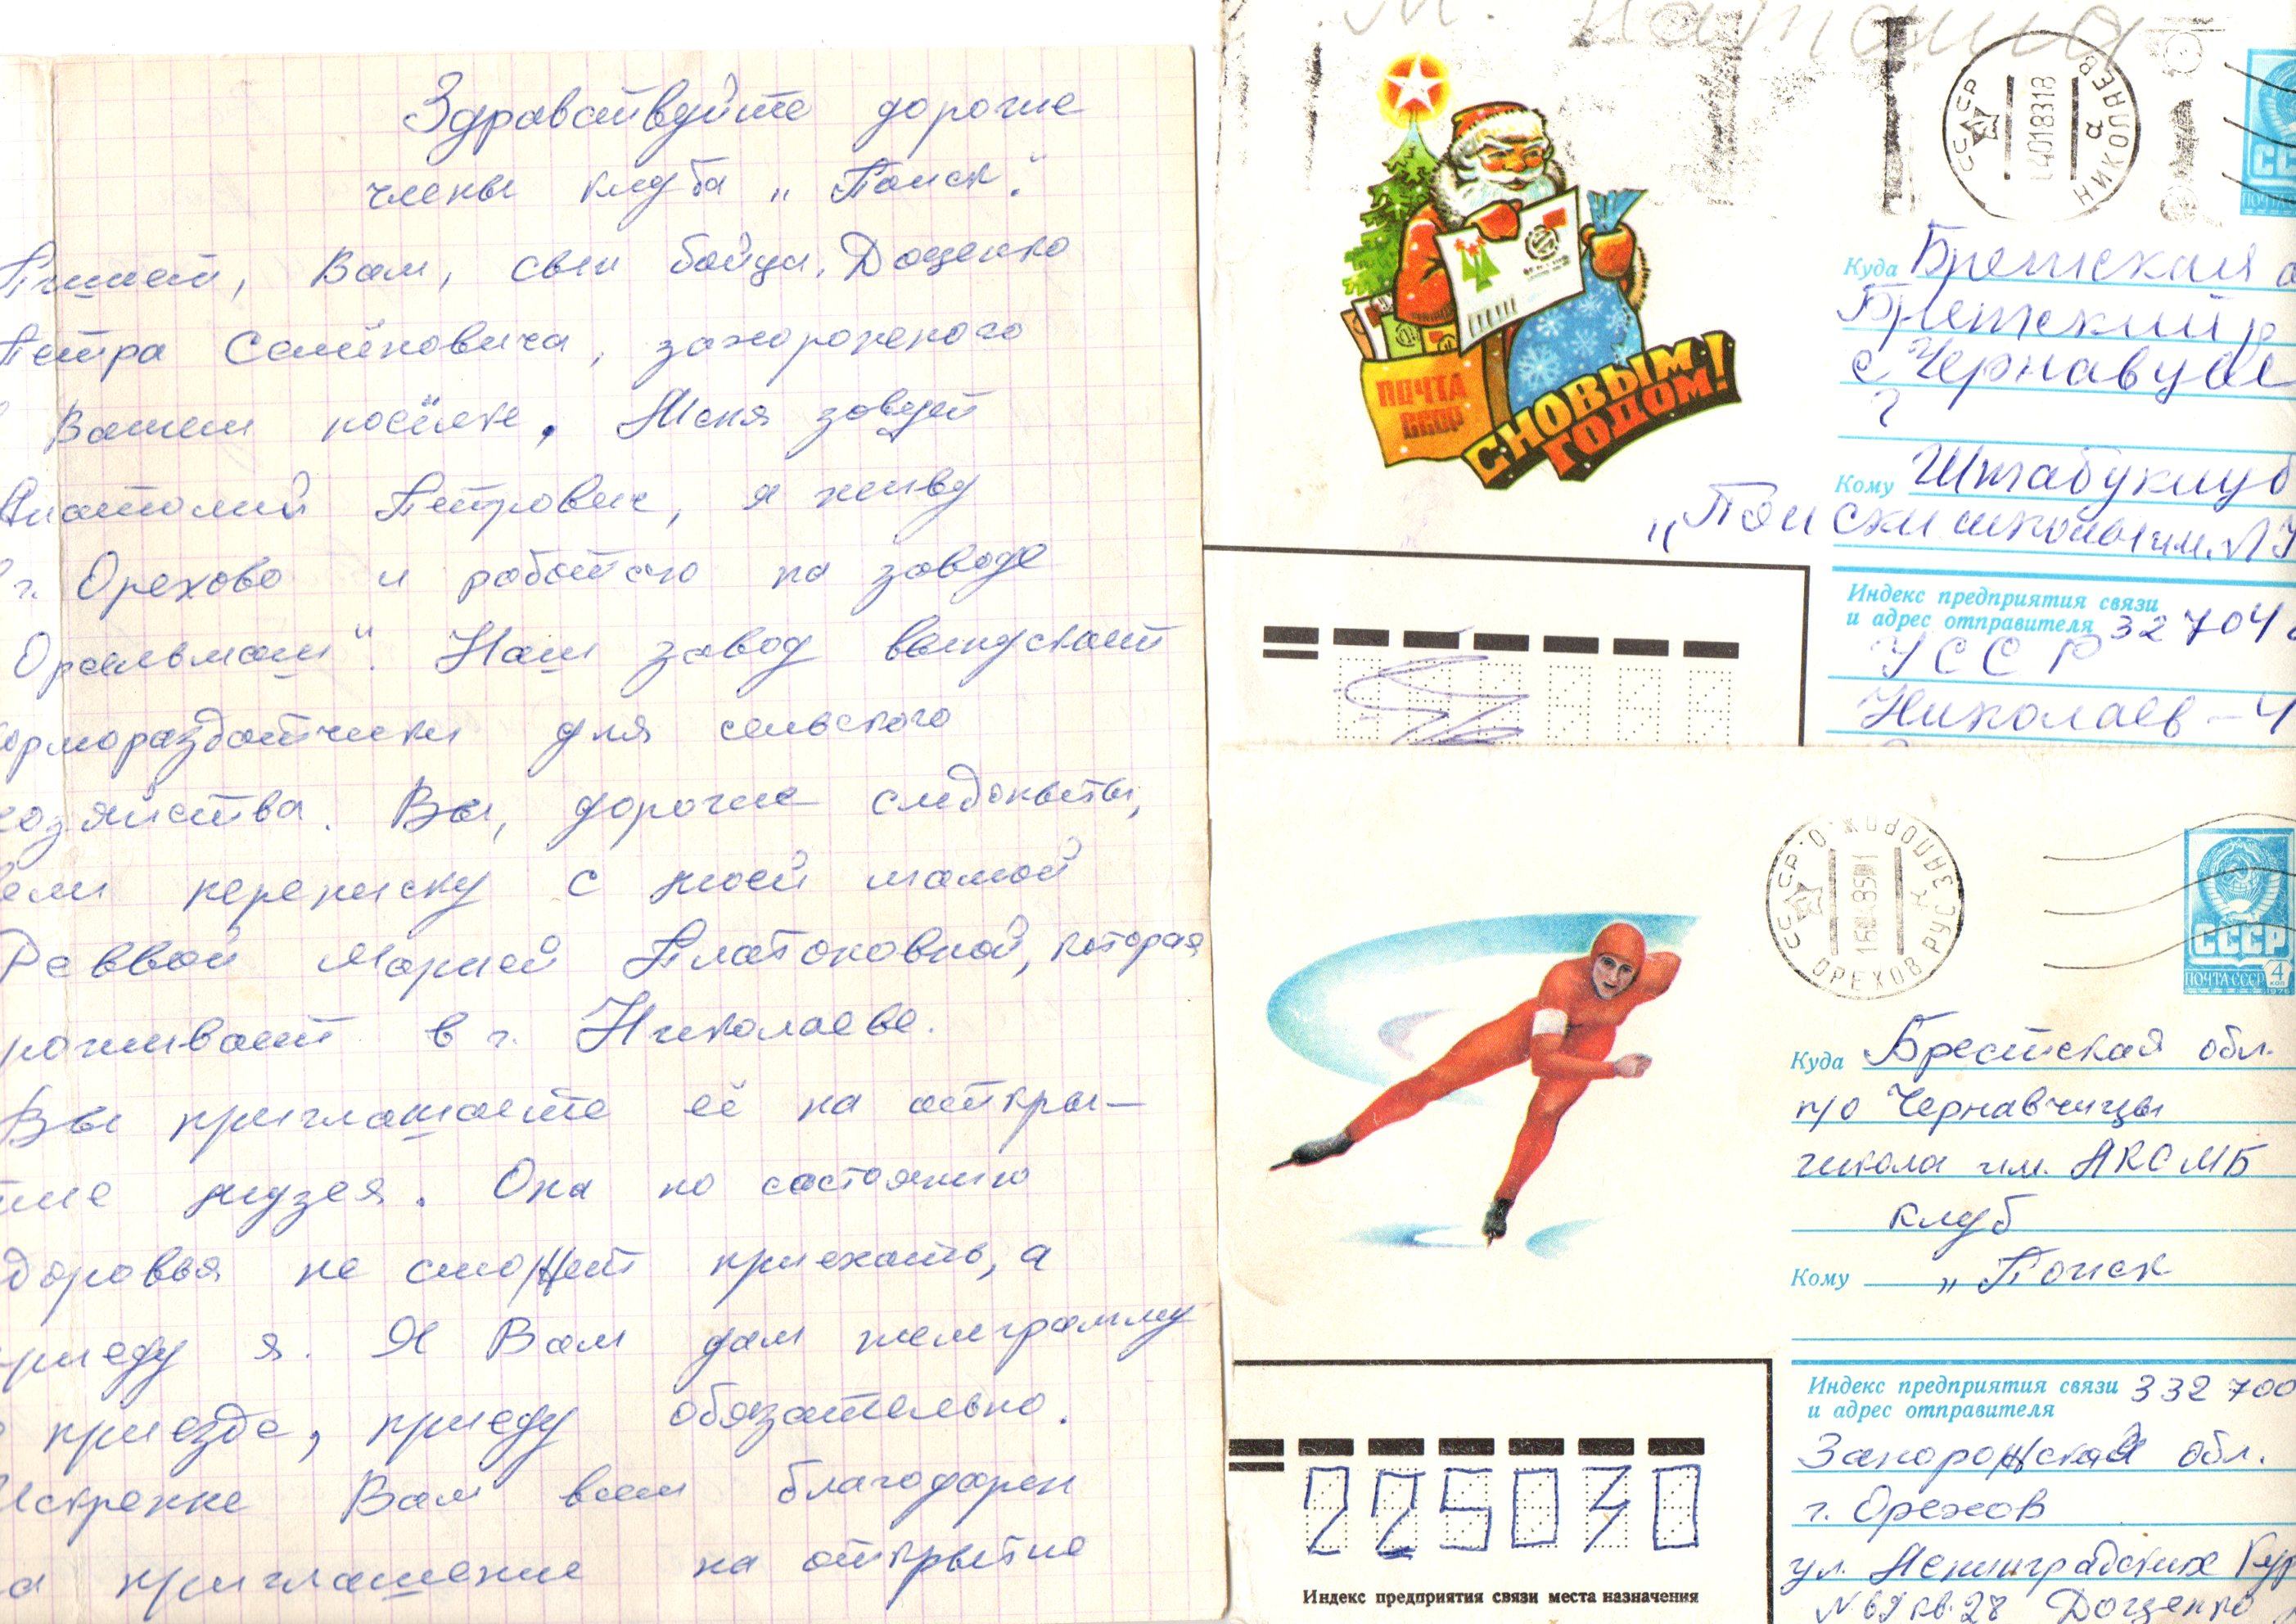 Здравствуйте дорогие
члены клуба „Поиск".
Пишет, Вам, сын бойца, Доценко
Петра Семёновича, захороненого
Вашем посёлке. Меня зовут
Анатолий Петрович, я живу
г. Орехово и работаю на заводе
Орсельмаш". Наш завод выпускает
кормораздатчики для сельского
хозяйства. Вы, дорогие следопыты,
вели переписку с моей мамой
Реввой Марией Платоновной, которая
проживает в г. Николаеве.
Вы приглашаете её на откры-
тие музея. Она по состоянию
здоровья не сможет приехать, а
приеду я. Я Вам дам телеграмму
приезде, приеду обязательно.
Искренне Вам всем благодарен
за приглашение на открытие
М. Наташа
СССР НИКОЛАЕВ
а
ПОЧТА СССР
С НОВЫМ ГОДОМ!
Куда Брестская о
Брестский р
с Чернавч
Кому Штабу клуб
„Поиск школы им.
Индекс предприятия связи
и адрес отправителя 32704
УССР
Николаев-4
СССР ЗАПОРОЖ. О. ОРЕХОВ РУС
СССР
ПОЧТА СССР 4 коп
1976
Куда Брестская обл.
п/о Чернавчицы
школа им. ЛКСМБ
клуб
Кому „Поиск
Индекс предприятия связи 332700
и адрес отправителя
Запорожская обл.
г. Орехов
ул. Ленинградских Кур
кв. 28 Доценко
225030
Индекс предприятия связи места назначения